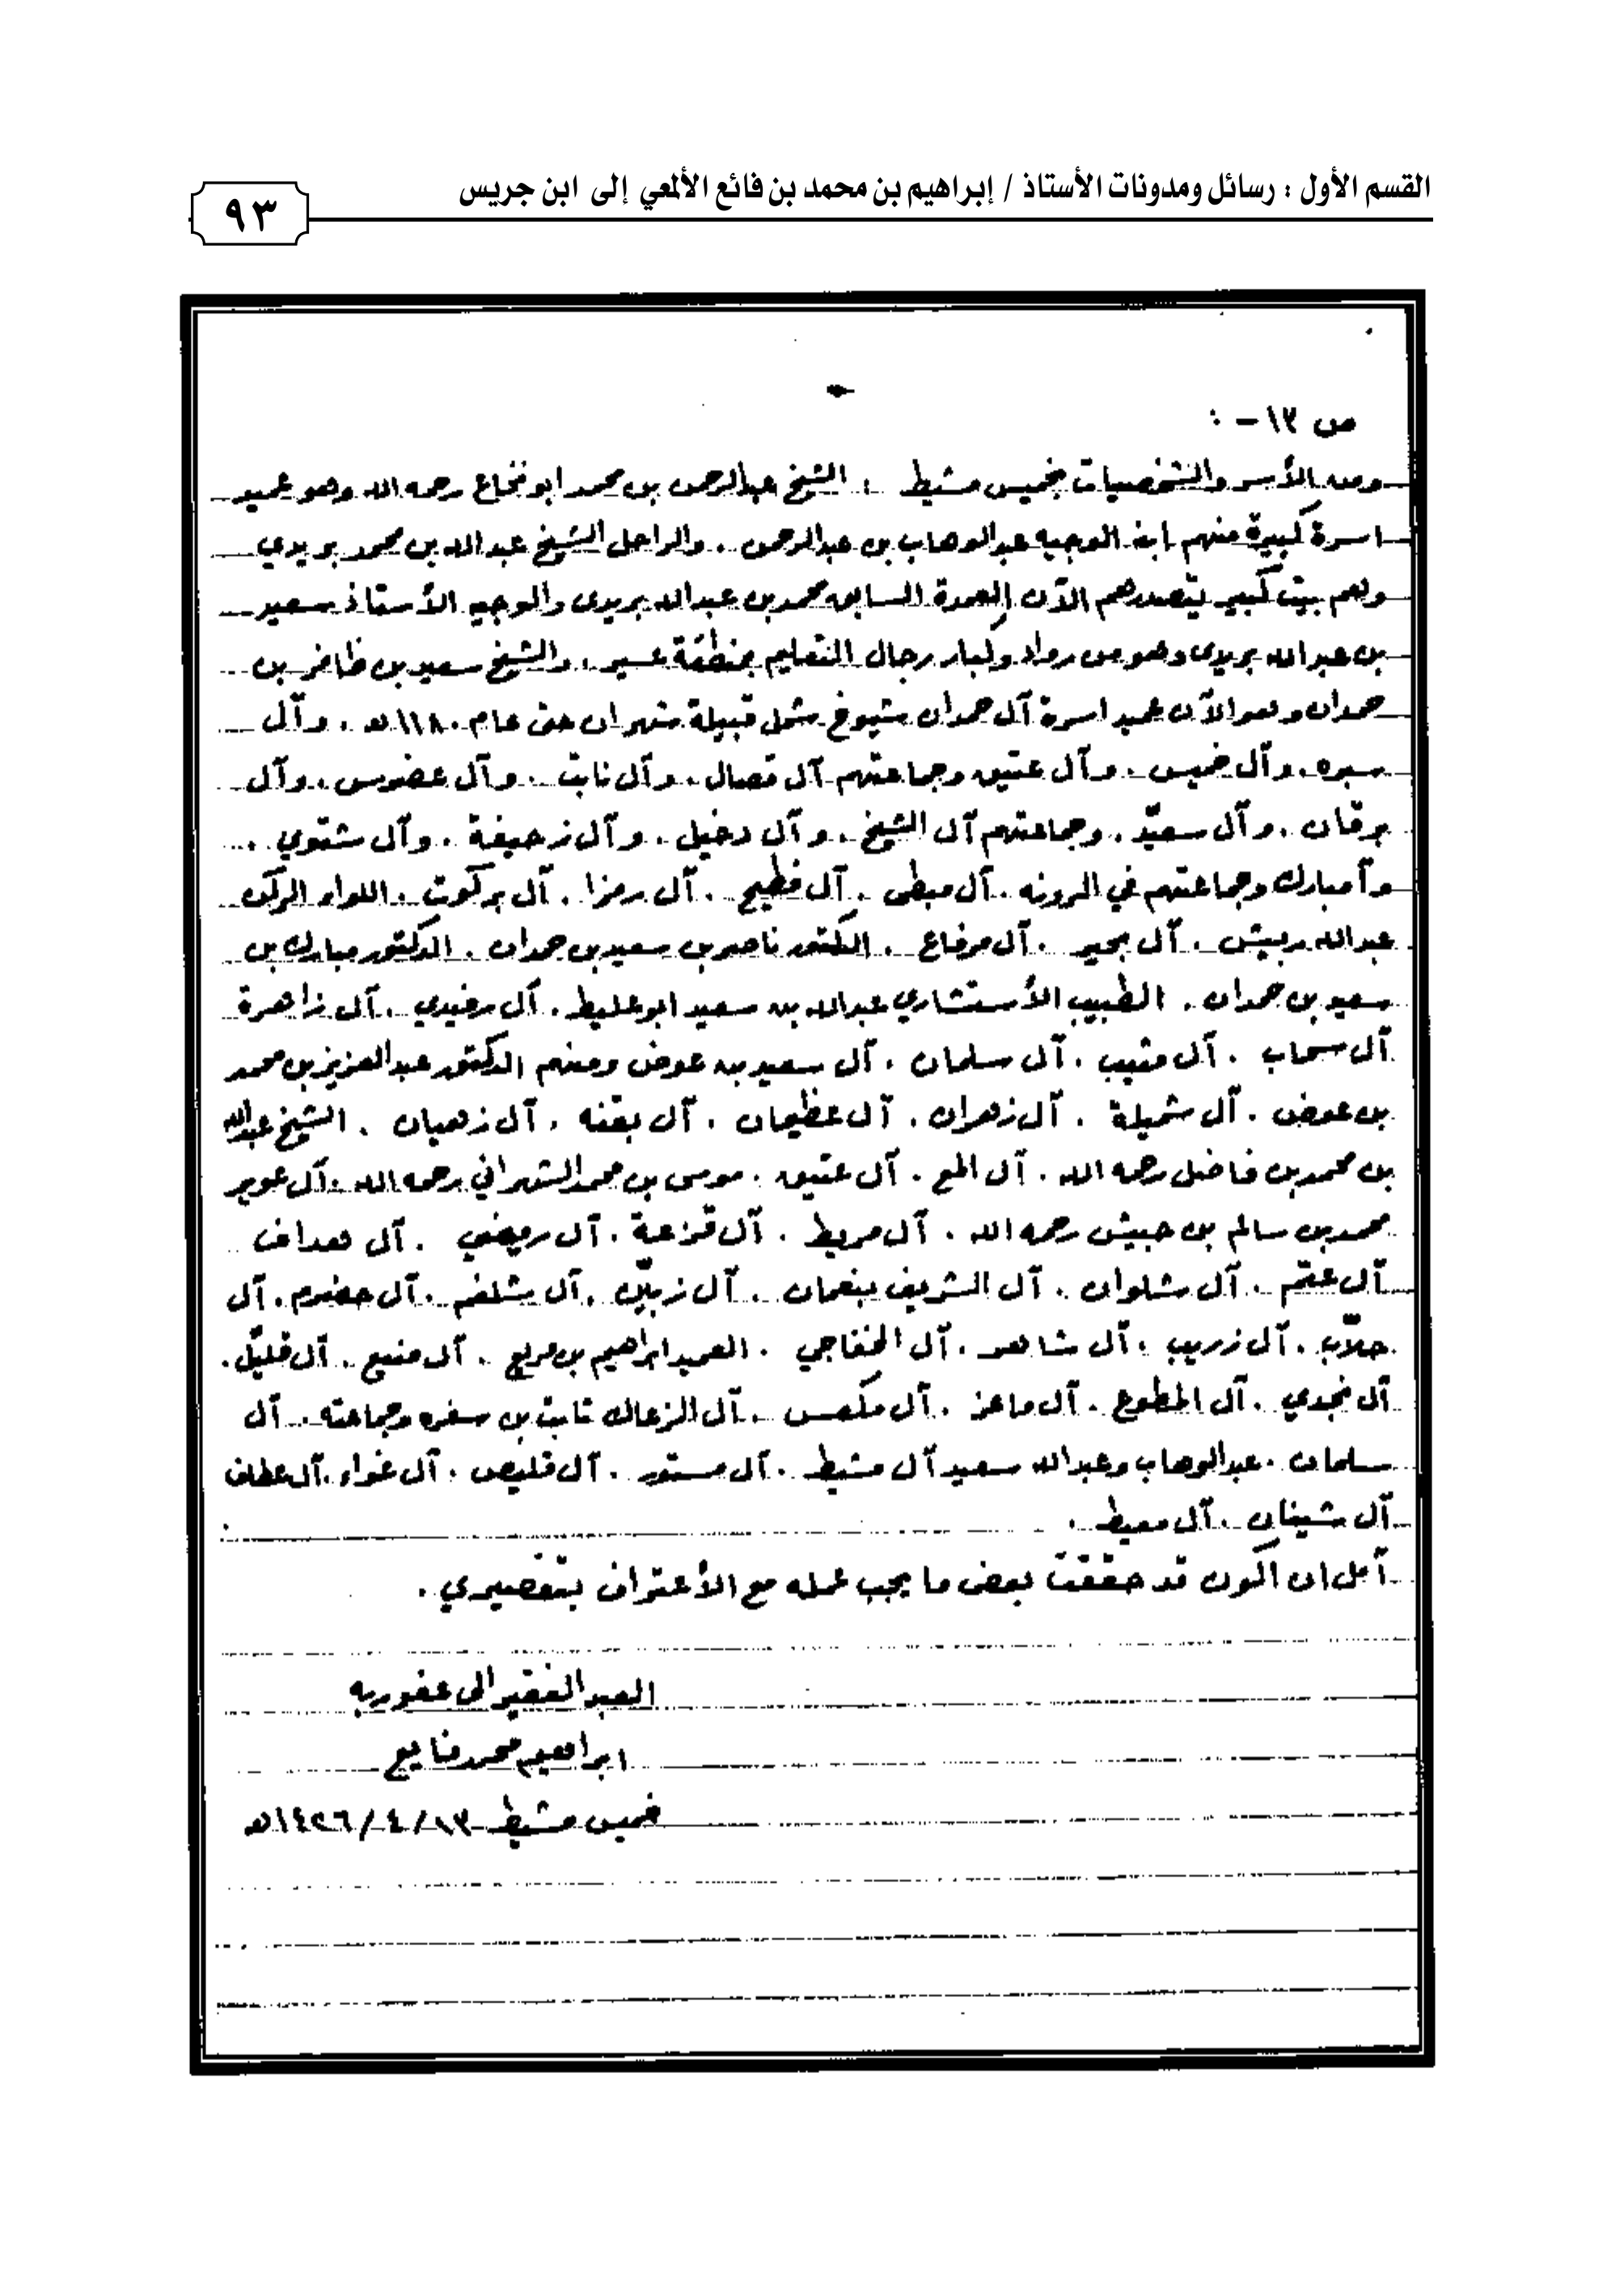 القسم الأول : رسائل ومدونات الأستاذ / إبراهيم بن محمد بن فائع الألمعي إلى ابن جريس
٩٣
ص ١٢ - :
ومن الأسر والشخصيات بخميس مشيط : الشيخ عبدالرحمن بن محمد ابو نخاع رحمه الله وهو عميد
اسرة كبيرة منهم ابنه الوجيه عبدالوهاب بن عبدالرحمن . والراحل الشيخ عبدالله بن محمد بريدي
وهم بيت كبير يتصدرهم الآن العمدة السابق محمد بن عبدالله بريدي والوجيه الأستاذ سعيد
بن عبدالله بريدي وهو من رواد وكبار رجال التعليم بمنطقة عسير . والشيخ سعيد بن ظافر بن
حمدان وهو الآن عميد اسرة آل حمدان شيوخ شمل قبيلة شهران حتى عام ١١٨٠هـ . وآل
سبره . وآل خميس . وآل عتيق وجماعتهم آل قصال . وآل نابت . وآل عضوس . وآل
برقان . وآل سعيّد . وجماعتهم آل الشيخ . وآل دخيل . وآل زحيفة . وآل شتوي .
وآ مبارك وجماعتهم في الرونه . آل مبطي . آل فطيح . آل رمزا . آل بركوت . اللواء الركن
عبدالله دبيش . آل بحير . آل مرفاع . الدكتور ناصر بن سعيد بن حمدان . الدكتور مبارك بن
سعيد بن حمدان . الطبيب الأستشاري عبدالله بن سعيد ابو عليط . آل رفيدي . آل زاهرة
آل سحاب . آل متيب . آل سلمان . آل سعيد بن عوض ومنهم الدكتور عبدالعزيز بن محمد
بن عوض . آل شميلة . آل زهران . آل عظيمان . آل بقنه . آل زهيان . الشيخ عبدالله
بن محمد بن فاضل رحمه الله . آل المع . آل عتيق . موسى بن محمد الشهراني رحمه الله . آل عوير
محمد بن سالم بن حبيش رحمه الله . آل مريط . آل قزعة . آل رميضي . آل هداف
آل عثم . آل شلوان . آل الشريف بنعمان . آل زبلان . آل شلغم . آل حضرم . آل
حلاّب . آل زريب . آل شاهر . آل الخفاجي . العميد ابراهيم بن مريع . آل منيع . آل قليّل .
آل نجدي . آل المطوع . آل ماعز . آل مكعس . آل الزعاك ثابت بن سفره وجماعته . آل
سلمان . عبدالوهاب وعبدالله سعيد آل مشيط . آل مستور . آل قليص . آل غواء . آل عطاف
آل شينان . آل معيط .
آمل ان اكون قد حققت بعض ما يجب عمله مع الأعتراف بتقصيري .
العبد الفقير الى عفو ربه
ابراهيم محمد فايع
خميس مشيط ١٣/٤/١٤٢٦هـ